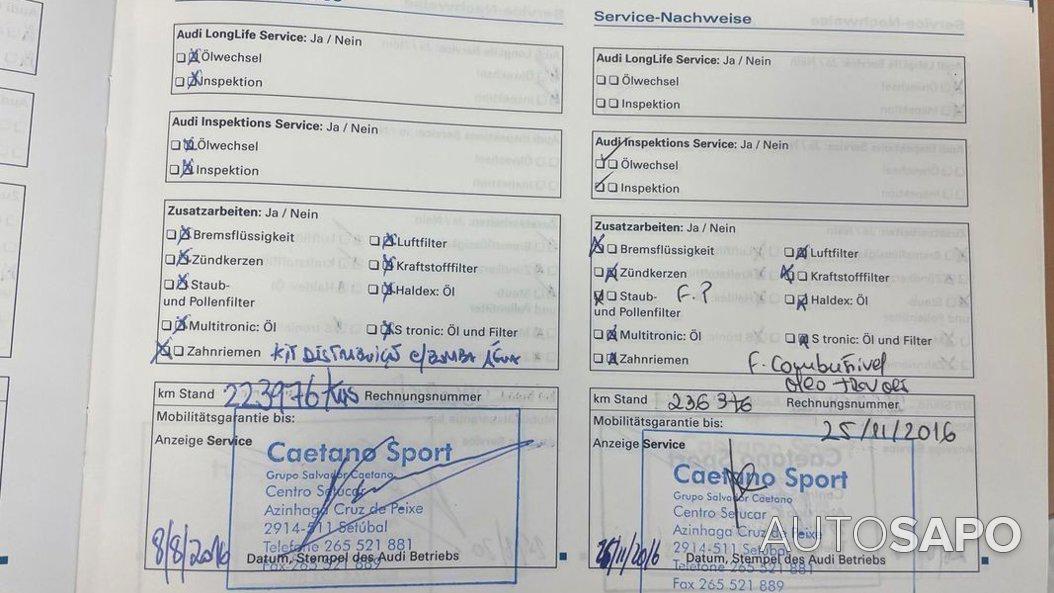 Audi LongLife Service: Ja / Nein
Ölwechsel
Inspektion
Audi Inspektions Service: Ja / Nein
Ölwechsel
Inspektion
Zusatzarbeiten: Ja / Nein
Bremsflüssigkeit Luftfilter
Zündkerzen Kraftstofffilter
Staub- Haldex: Öl
und Pollenfilter
Multitronic: Öl S tronic: Öl und Filter
Zahnriemen KIT DISTRIBUIÇÃ c/BOMBA ÁGUA
km Stand 223976 Kms Rechnungsnummer
Mobilitätsgarantie bis:
Anzeige Service
Caetano Sport
Grupo Salvador Caetano
Centro Setucar
Azinhaga Cruz de Peixe
2914-511 Setúbal
Telefone 265 521 881
Fax 265 521 889
8/8/2016 Datum, Stempel des Audi Betriebs
Service-Nachweise
Audi LongLife Service: Ja / Nein
Ölwechsel
Inspektion
Audi Inspektions Service: Ja / Nein
Ölwechsel
Inspektion
Zusatzarbeiten: Ja / Nein
Bremsflüssigkeit Luftfilter
Zündkerzen Kraftstofffilter
Staub- F.P Haldex: Öl
und Pollenfilter
Multitronic: Öl S tronic: Öl und Filter
Zahnriemen F. Combustivel
oleo travões
km Stand 236376 Rechnungsnummer
Mobilitätsgarantie bis: 25/11/2016
Anzeige Service
Caetano Sport
Grupo Salvador Caetano
Centro Setucar
Azinhaga Cruz de Peixe
2914-511 Setúbal
Telefone 265 521 881
Fax 265 521 889
25/11/2016 Datum, Stempel des Audi Betriebs
AUTOSAPO